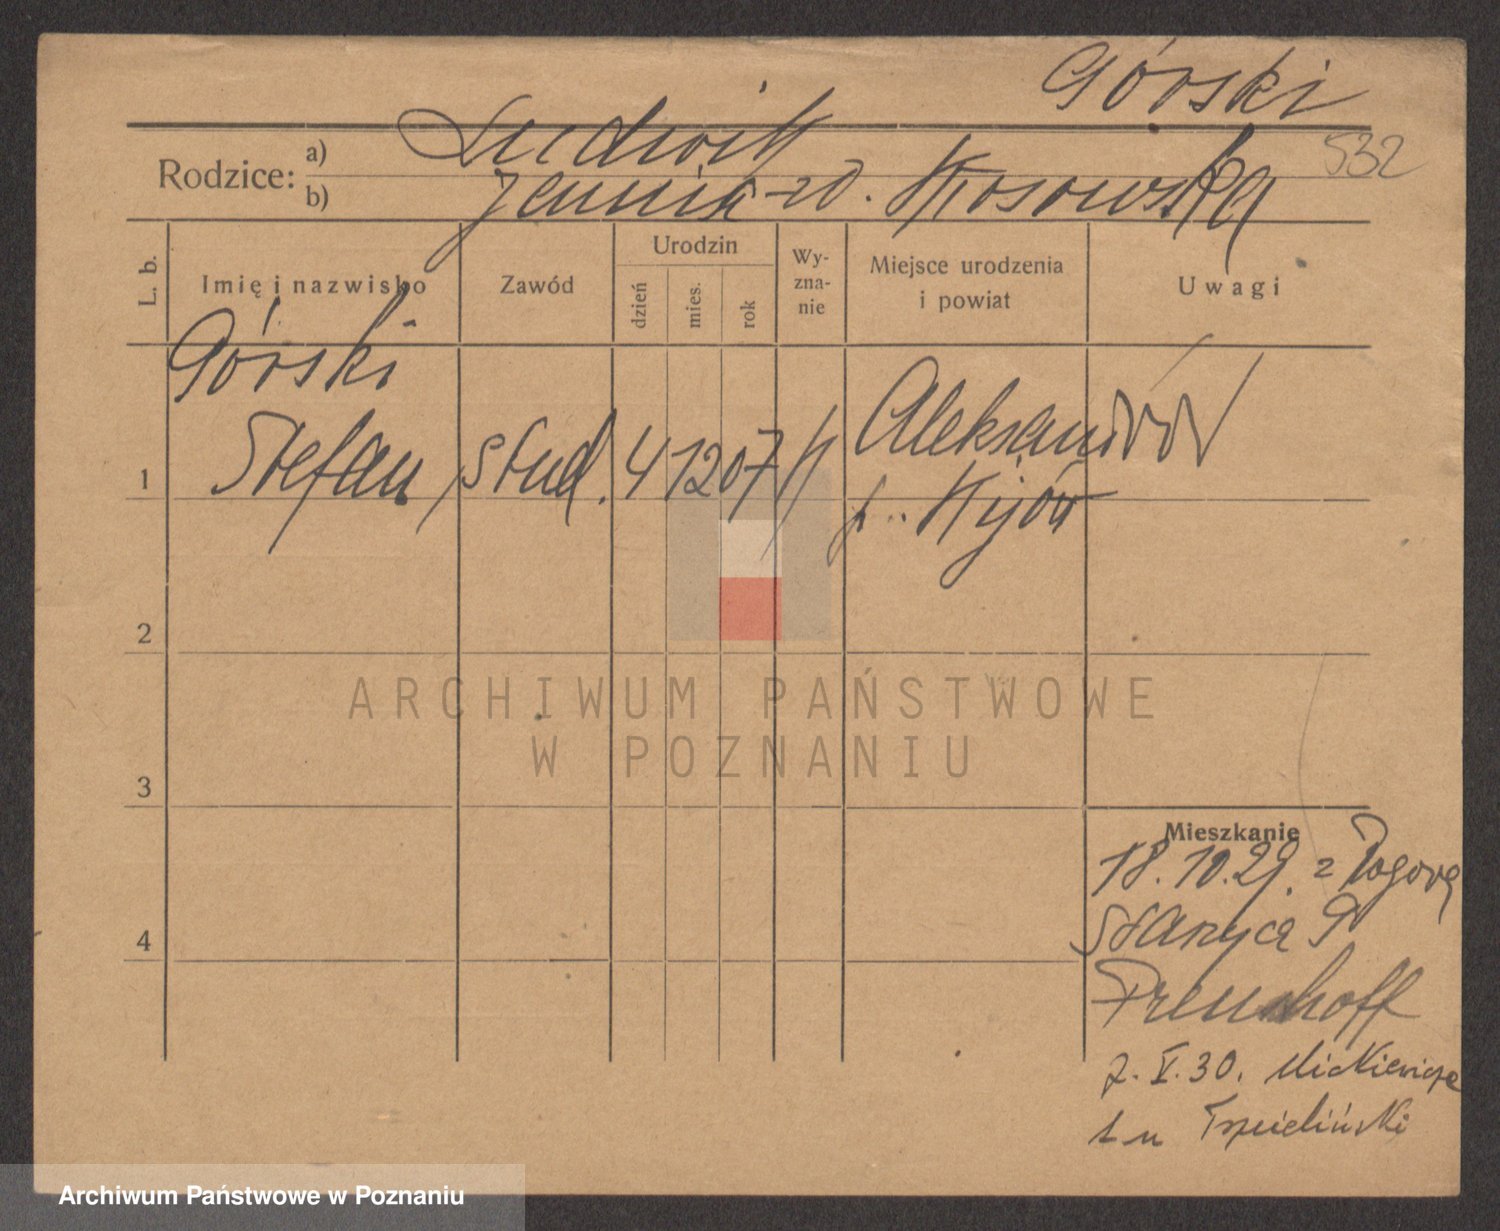 Górski
532
Rodzice:
a) Ludwik
b) Jannina z d. Kosowska
L. b.
Imię i nazwisko
Zawód
Urodzin
dzień
mies.
rok
Wy-
zna-
nie
Miejsce urodzenia
i powiat
Uwagi
Górski
1 Stefan, stud. 4 12 07 K Aleksandrów
p. Kijów
2
3
4
Mieszkanie
18.10.29. z
Staszyca 9
7. V. 30. Mickiewicza
u
ARCHIWUM PAŃSTWOWE
W POZNANIU
Archiwum Państwowe w Poznaniu